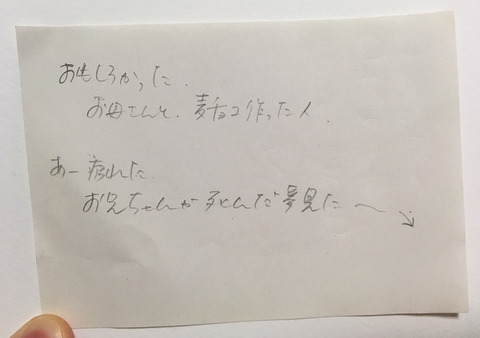 おもしろかった.
お母さんと、麦チョコ作った人.
あー疲れた
お兄ちゃんが死んだ夢見た〜↘